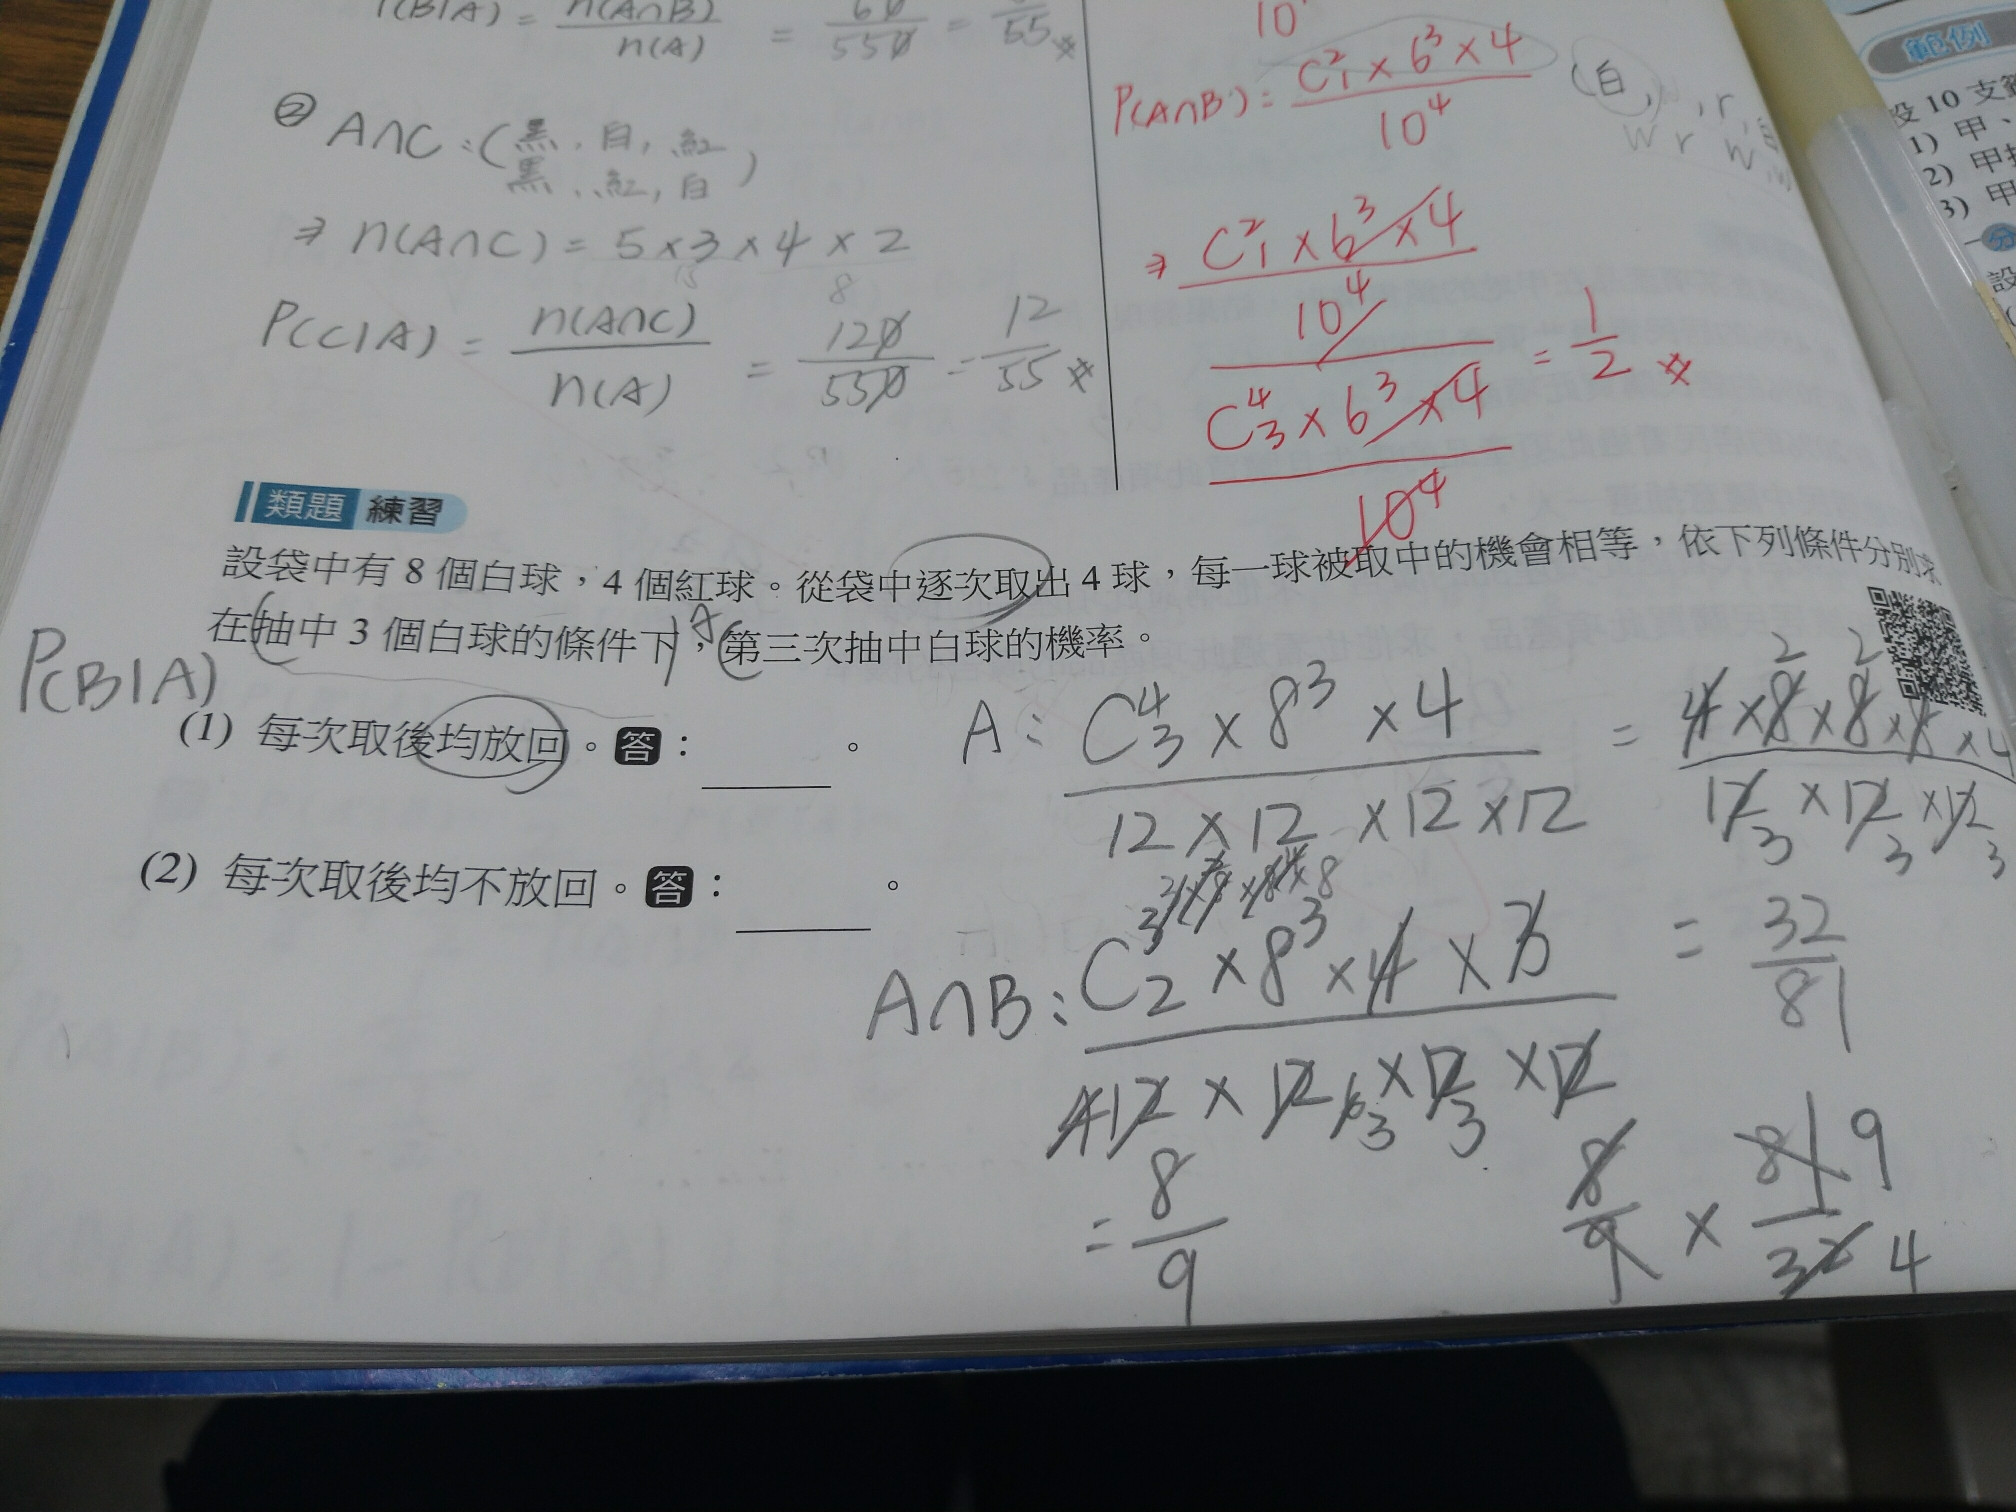 P(B|A) = n(A∩B) / n(A) = 60/550 = /55
② A∩C:(黑,白,紅
黑,紅,白)
⇒ n(A∩C) = 5×3×4×2
15 8
P(C|A) = n(A∩C) / n(A) = 120/550 = 12/55
10
P(A∩B) = C²₁×6³×4 / 10⁴
(白,
w r w
⇒ C²₁×6³×4 / 10⁴
C⁴₃×6³×4 / 10⁴ = 1/2
範例
設 10 支籤
1) 甲、
2) 甲
3) 甲
設
類題 練習
設袋中有 8 個白球,4 個紅球。從袋中逐次取出 4 球,每一球被取中的機會相等,依下列條件分別求
在抽中 3 個白球的條件下,第三次抽中白球的機率。
A
P(B|A)
(1) 每次取後均放回。答:______。
(2) 每次取後均不放回。答:______。
A: C⁴₃×8³×4 / 12×12×12×12 = 4×8×8×8×4 / 12×12×12
2 2
3 3 3
= 32/81
A∩B: C³₂×8³×4×3 / 12×12×12×12
3 3
= 8/9
8/9 × 81/32
9
4